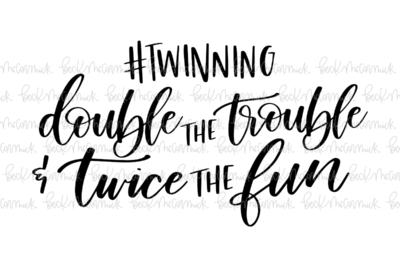 #TWINNING
double THE trouble
& twice THE fun